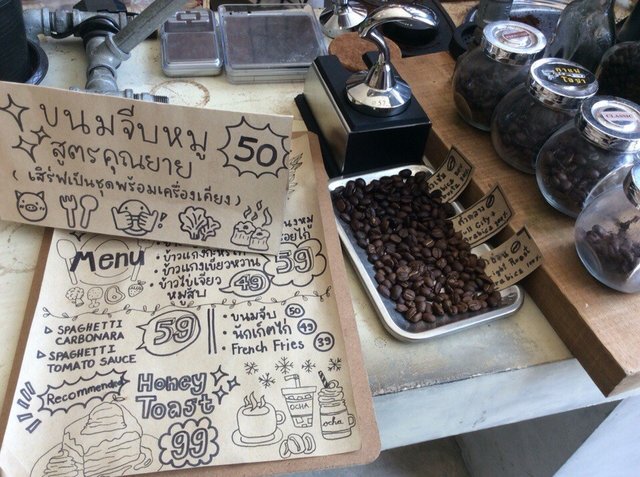 ขนมจีบหมู
สูตรคุณยาย
50
(เสิร์ฟเป็นชุดพร้อมเครื่องเคียง)
Menu
• ข้าวแกงเขียวหวาน
• ข้าวไข่เจียว
หมูสับ
59
49
▷ SPAGHETTI
CARBONARA
▷ SPAGHETTI
TOMATO SAUCE
59
• ขนมจีบ 50
• นักเก็ตไก่ 49
• French Fries 39
Recommended
Honey
Toast
99
OCHA
ocha
CLASSIC
คั่วกลาง
Full City
Arabica
คั่วอ่อน
Light Roast
Arabica